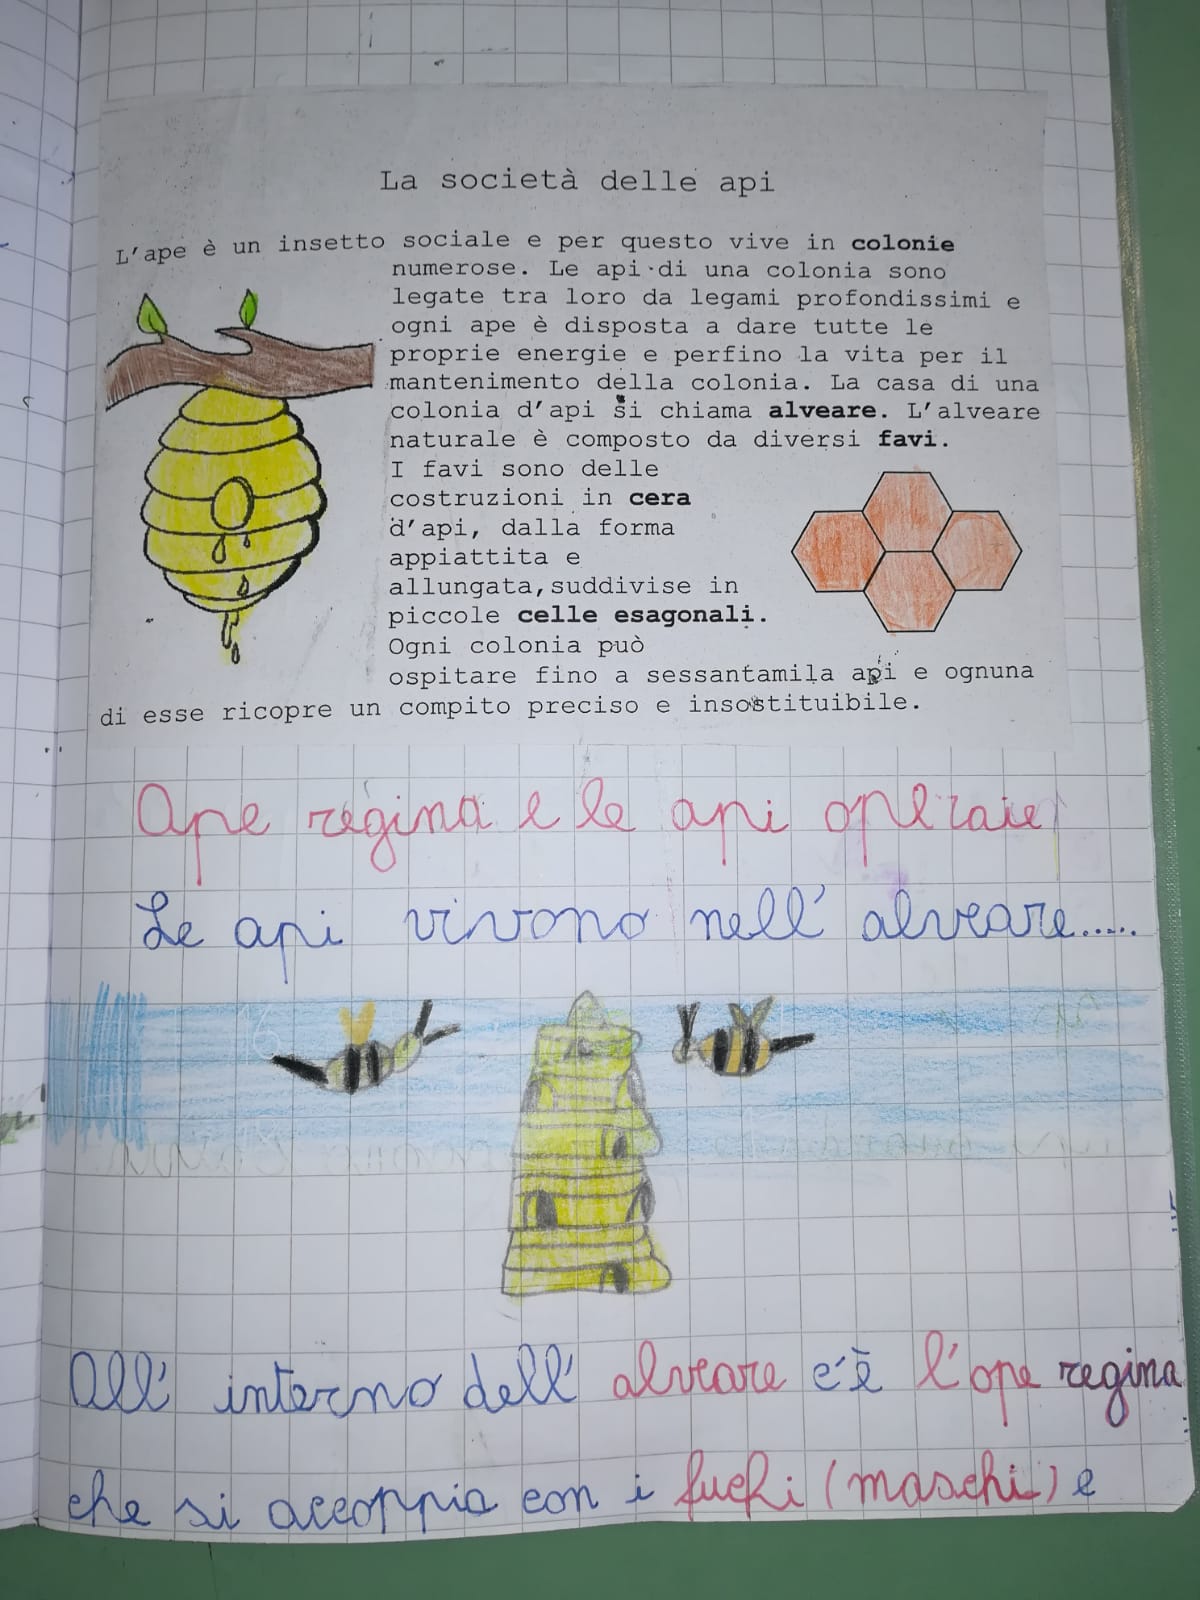 La società delle api
L'ape è un insetto sociale e per questo vive in colonie
numerose. Le api di una colonia sono
legate tra loro da legami profondissimi e
ogni ape è disposta a dare tutte le
proprie energie e perfino la vita per il
mantenimento della colonia. La casa di una
colonia d'api si chiama alveare. L'alveare
naturale è composto da diversi favi.
I favi sono delle
costruzioni in cera
d'api, dalla forma
appiattita e
allungata,suddivise in
piccole celle esagonali.
Ogni colonia può
ospitare fino a sessantamila api e ognuna
di esse ricopre un compito preciso e insostituibile.
Ape regina e le api operaie
Le api vivono nell'alveare.....
All'interno dell'alveare c'è l'ape regina
che si accoppia con i fuchi (maschi) e